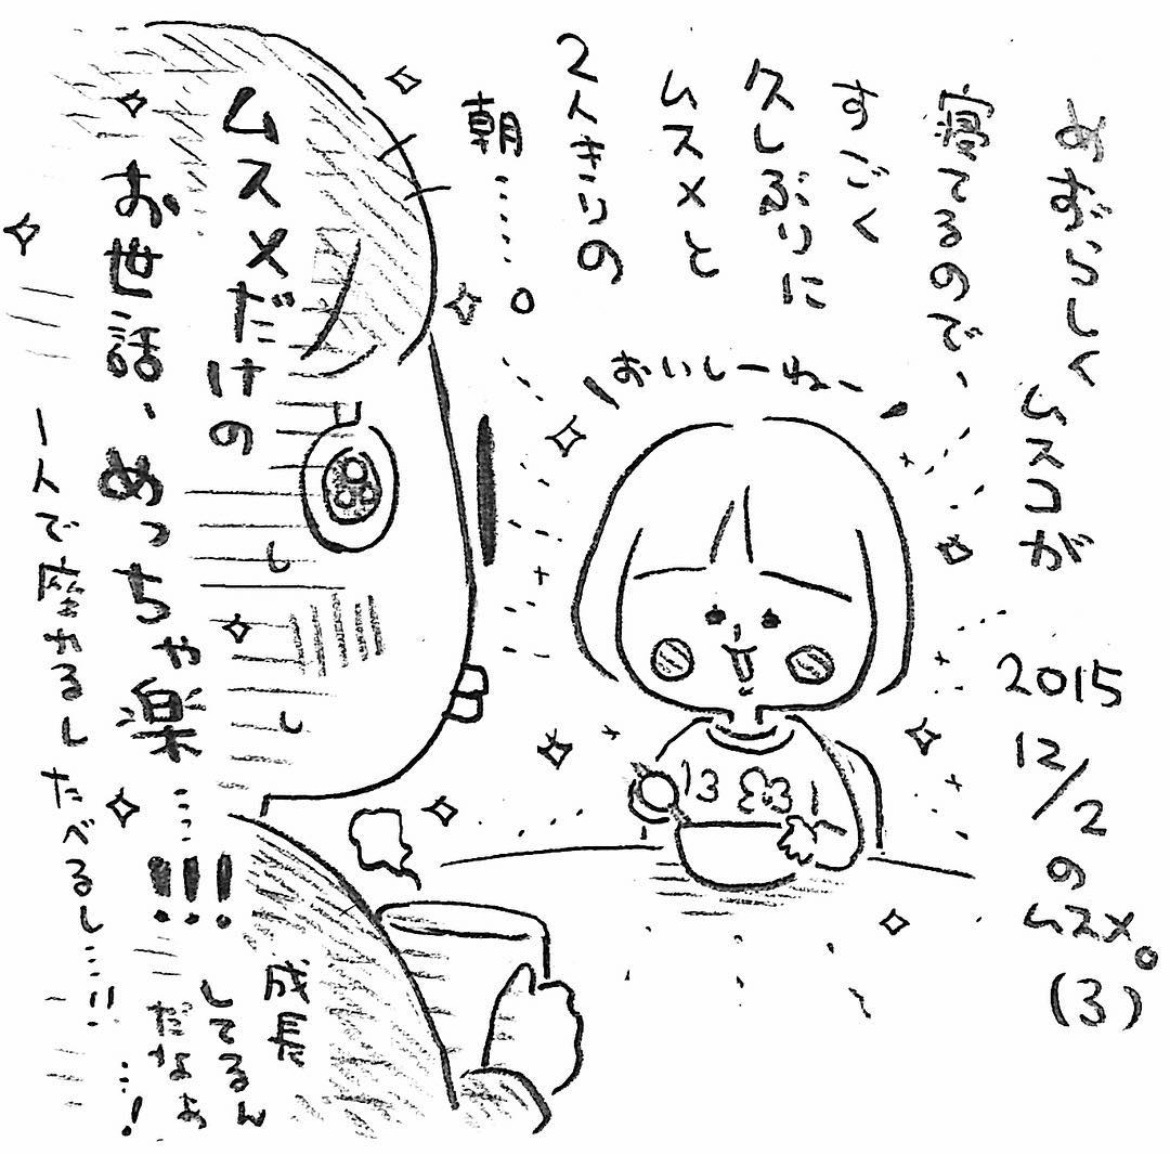 2015
12/2
の
ムスメ。
(3)
めずらしく
ムスコが
寝てるので、
すごく
久しぶりに
ムスメと
2人きりの
朝……。
おいしーねー
ムスメだけの
お世話、めっちゃ楽……!!!
1人で座れるしたべるし…!!
成長
してるん
だなぁ
…!